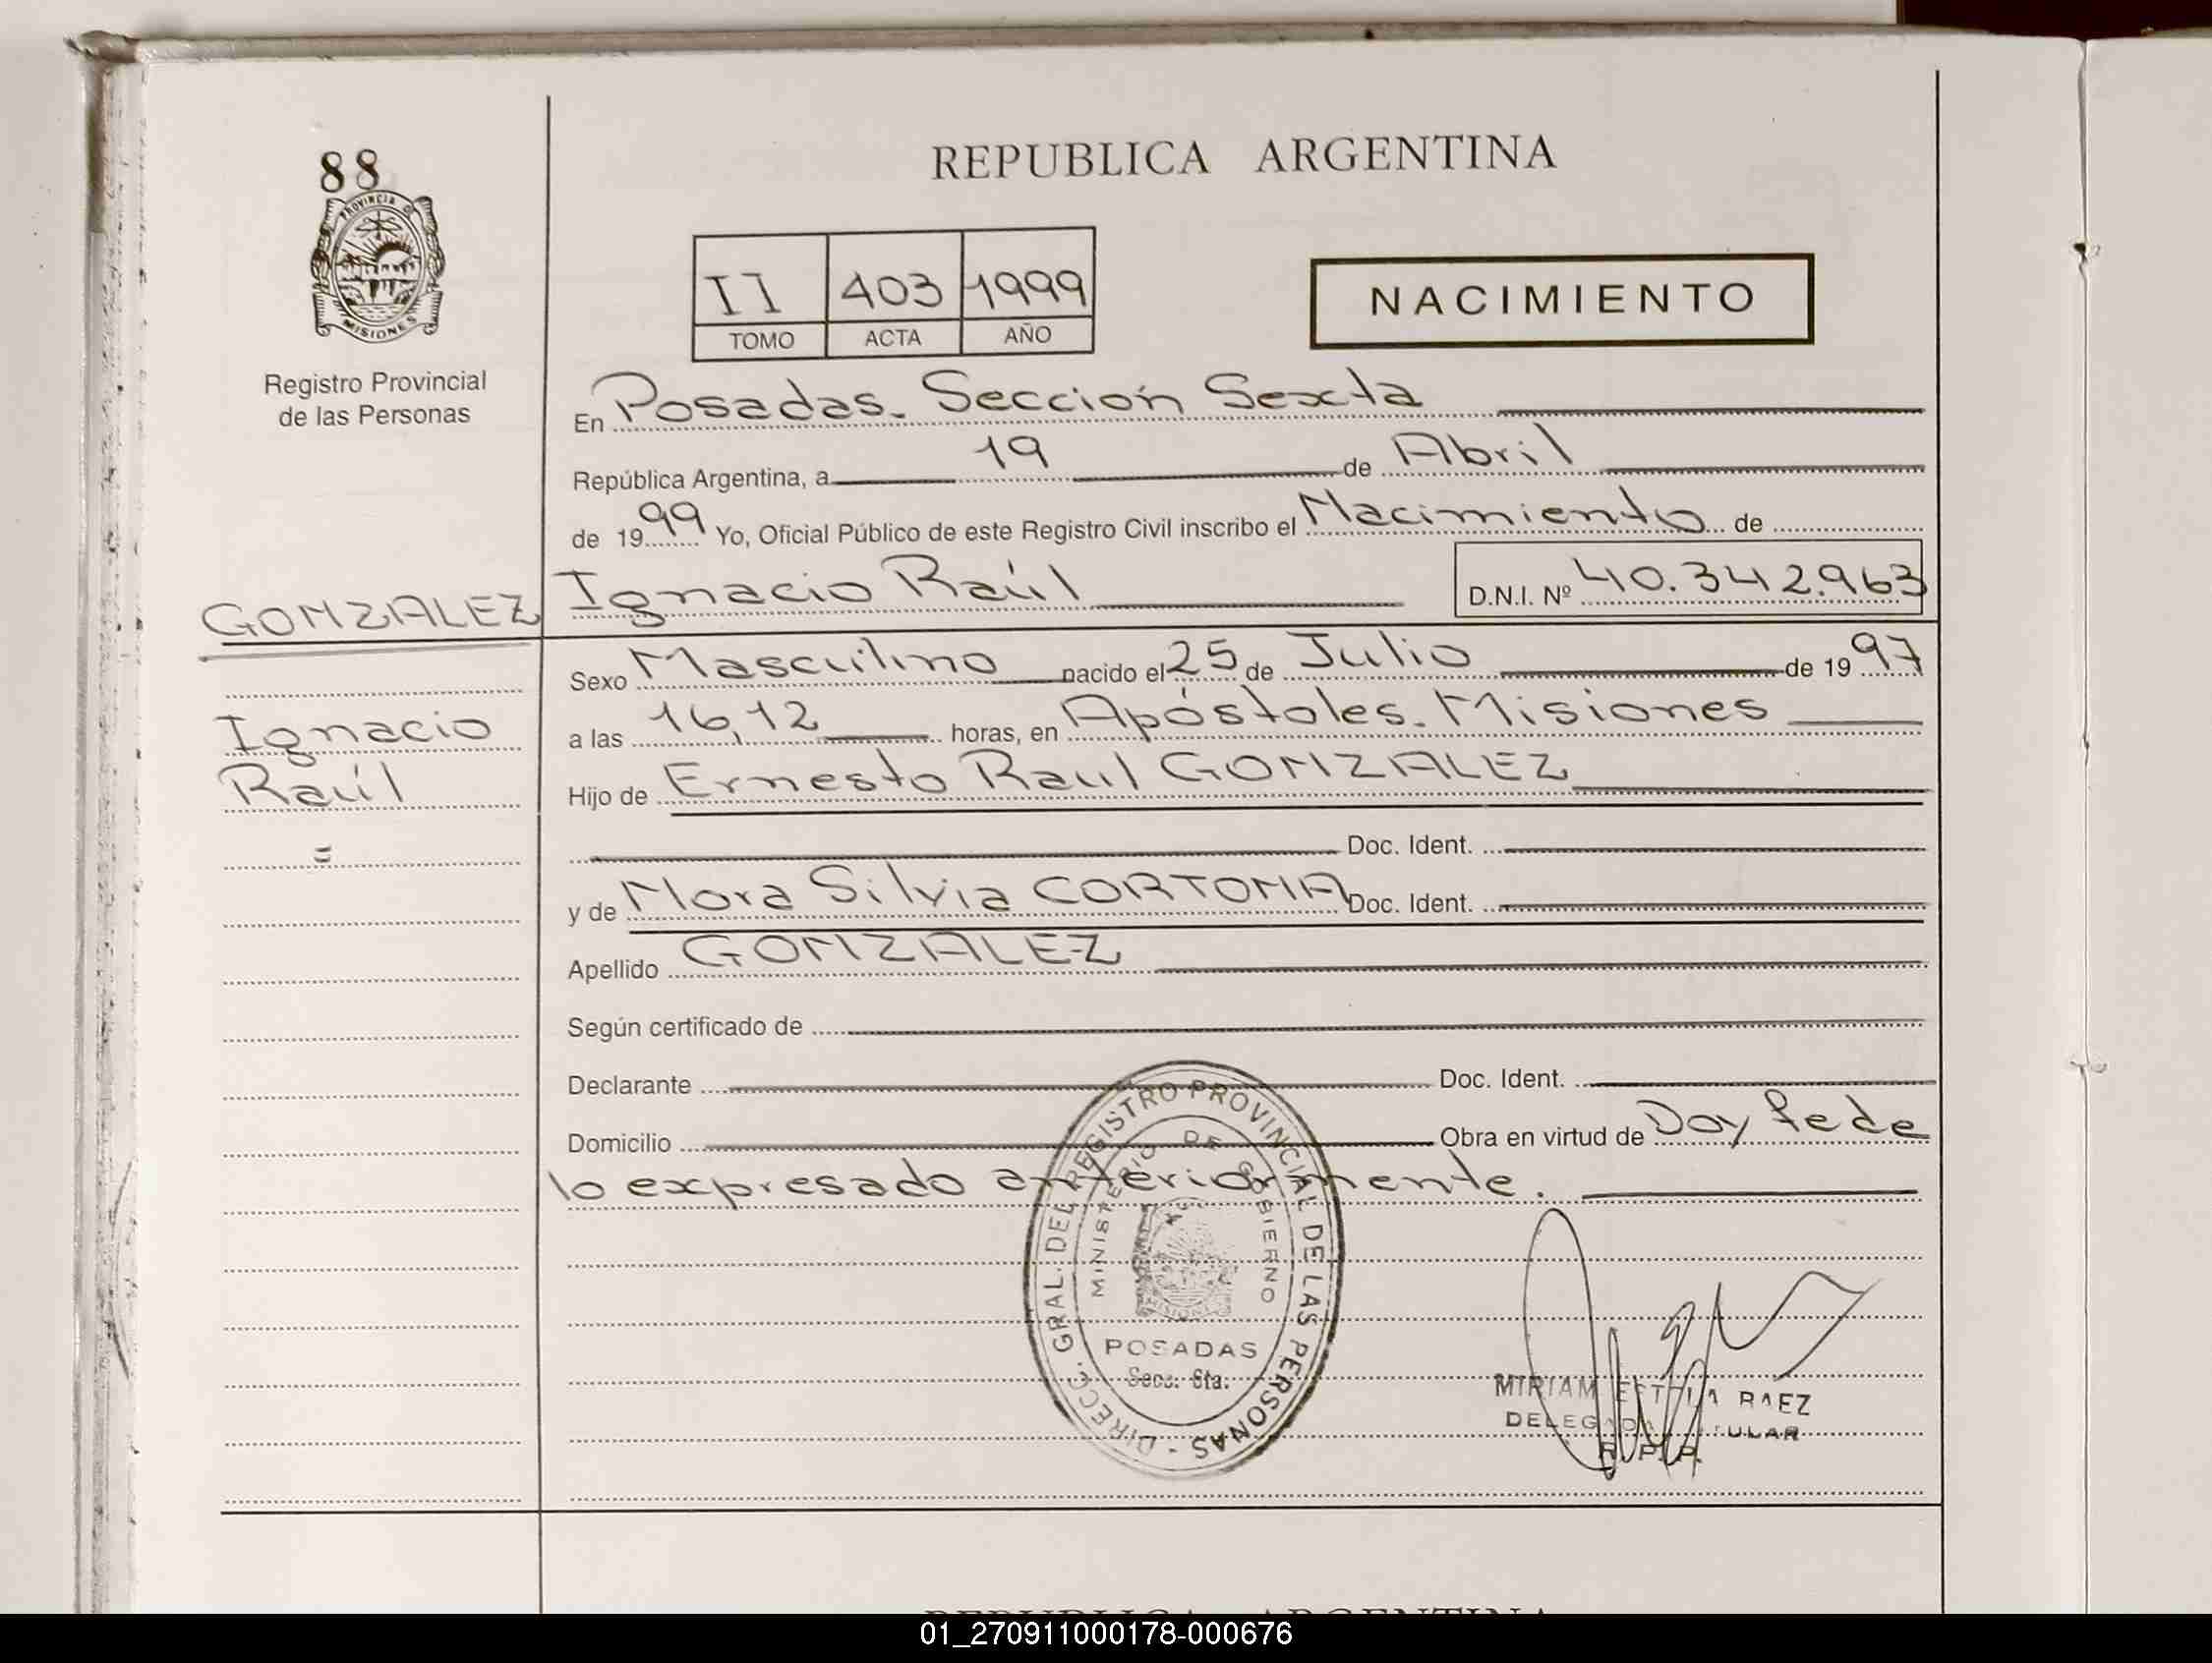 88
PROVINCIA DE
MISIONES
Registro Provincial
de las Personas
REPUBLICA ARGENTINA
II 403 1999
TOMO ACTA AÑO
NACIMIENTO
En Posadas. Sección Sexta
República Argentina, a 19 de Abril
de 1999 Yo, Oficial Público de este Registro Civil inscribo el Nacimiento de
GONZALEZ Ignacio Raúl D.N.I. Nº 40.342.963
Sexo Masculino nacido el 25 de Julio de 1997
Ignacio
Raúl
a las 16,12 horas, en Apóstoles. Misiones
Hijo de Ernesto Raul GONZALEZ
Doc. Ident.
y de Nora Silvia CORTONA Doc. Ident.
Apellido GONZALEZ
Según certificado de
Declarante Doc. Ident.
Domicilio Obra en virtud de Doy fe de
lo expresado anteriormente.
DIRECC. GRAL. DEL REGISTRO PROVINCIAL DE LAS PERSONAS -
MINISTERIO DE GOBIERNO
MISIONES
POSADAS
Secc. 6ta.
MIRIAM ESTELA BAEZ
DELEGADA TITULAR
R. P. P.
REPUBLICA ARGENTINA
01_270911000178-000676